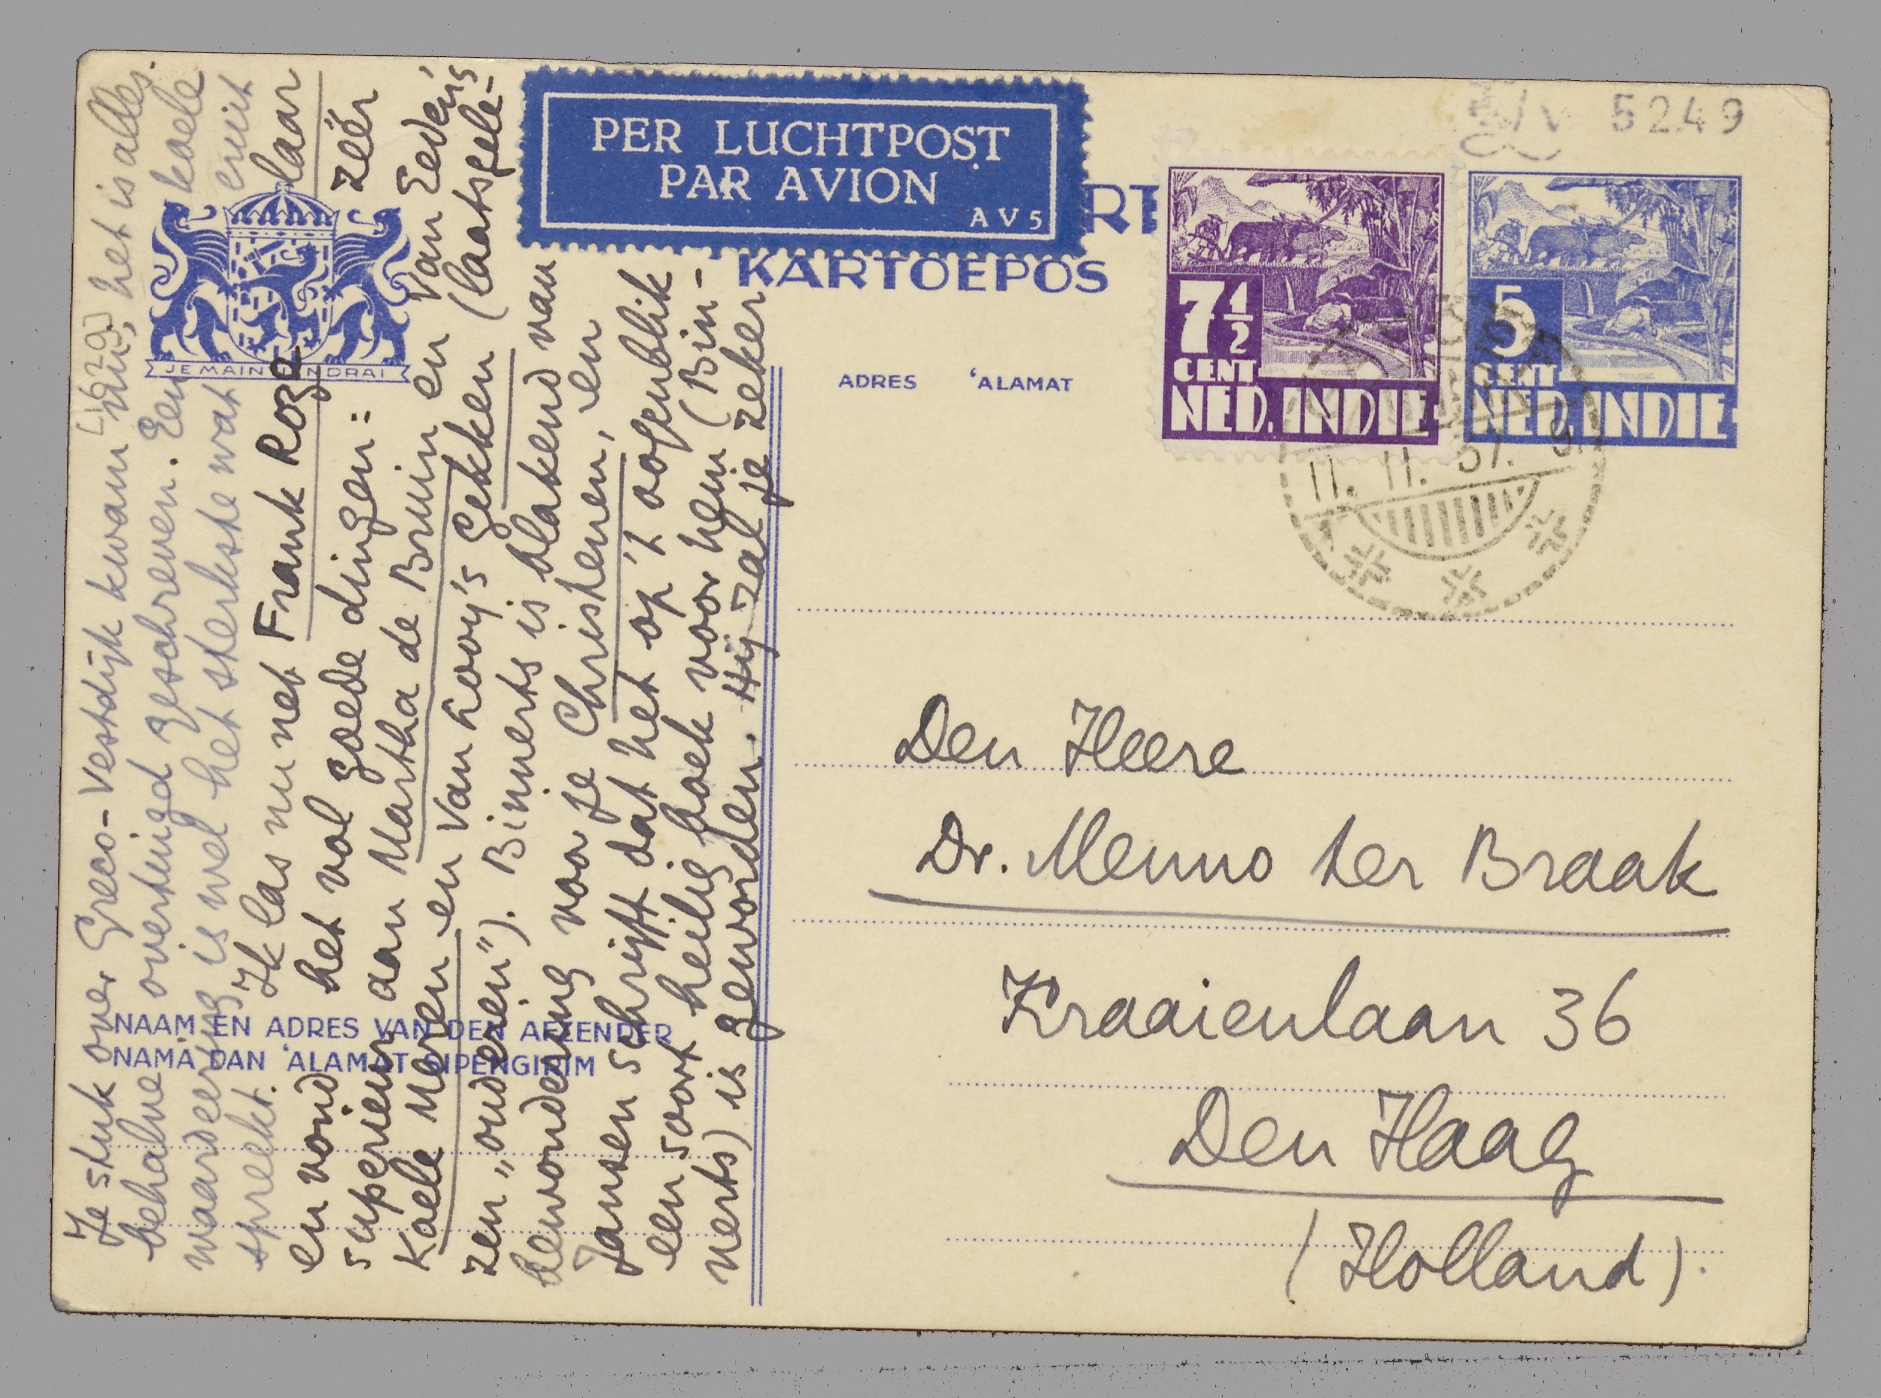 PER LUCHTPOST
PAR AVION
AV5
KARTOEPOS
ADRES 'ALAMAT
7½
CENT
NED. INDIE
5
CENT
NED. INDIE
5249
11. 11. 37. 9
JE MAINTIENDRAI
Den Heere
Dr. Menno ter Braak
Kraaienlaan 36
Den Haag
(Holland).
NAAM EN ADRES VAN DEN AFZENDER
NAMA DAN 'ALAMAT DIPENGIRIM
Je stuk over Greco-Vestdijk kwam nu; het is alles
behalve overtuigd geschreven. Een kaele
waardeering is wel het sterkste wat eruit
spreekt. Ik las nu net Frank Rozelaar
en vond het vol goede dingen: zéér
superieur aan Martha de Bruin en Van Eeden's
Kaele Meren en Van Looy's Gekken (laatsgele-
zen „ouderen"). Binnerts is blakend van
bewondering voor je Christenen, en
Jansen schrijft dat het op 't oogenblik
een soort heilig boek voor hem (Bin-
nerts) is geworden. Hij zal je zeker